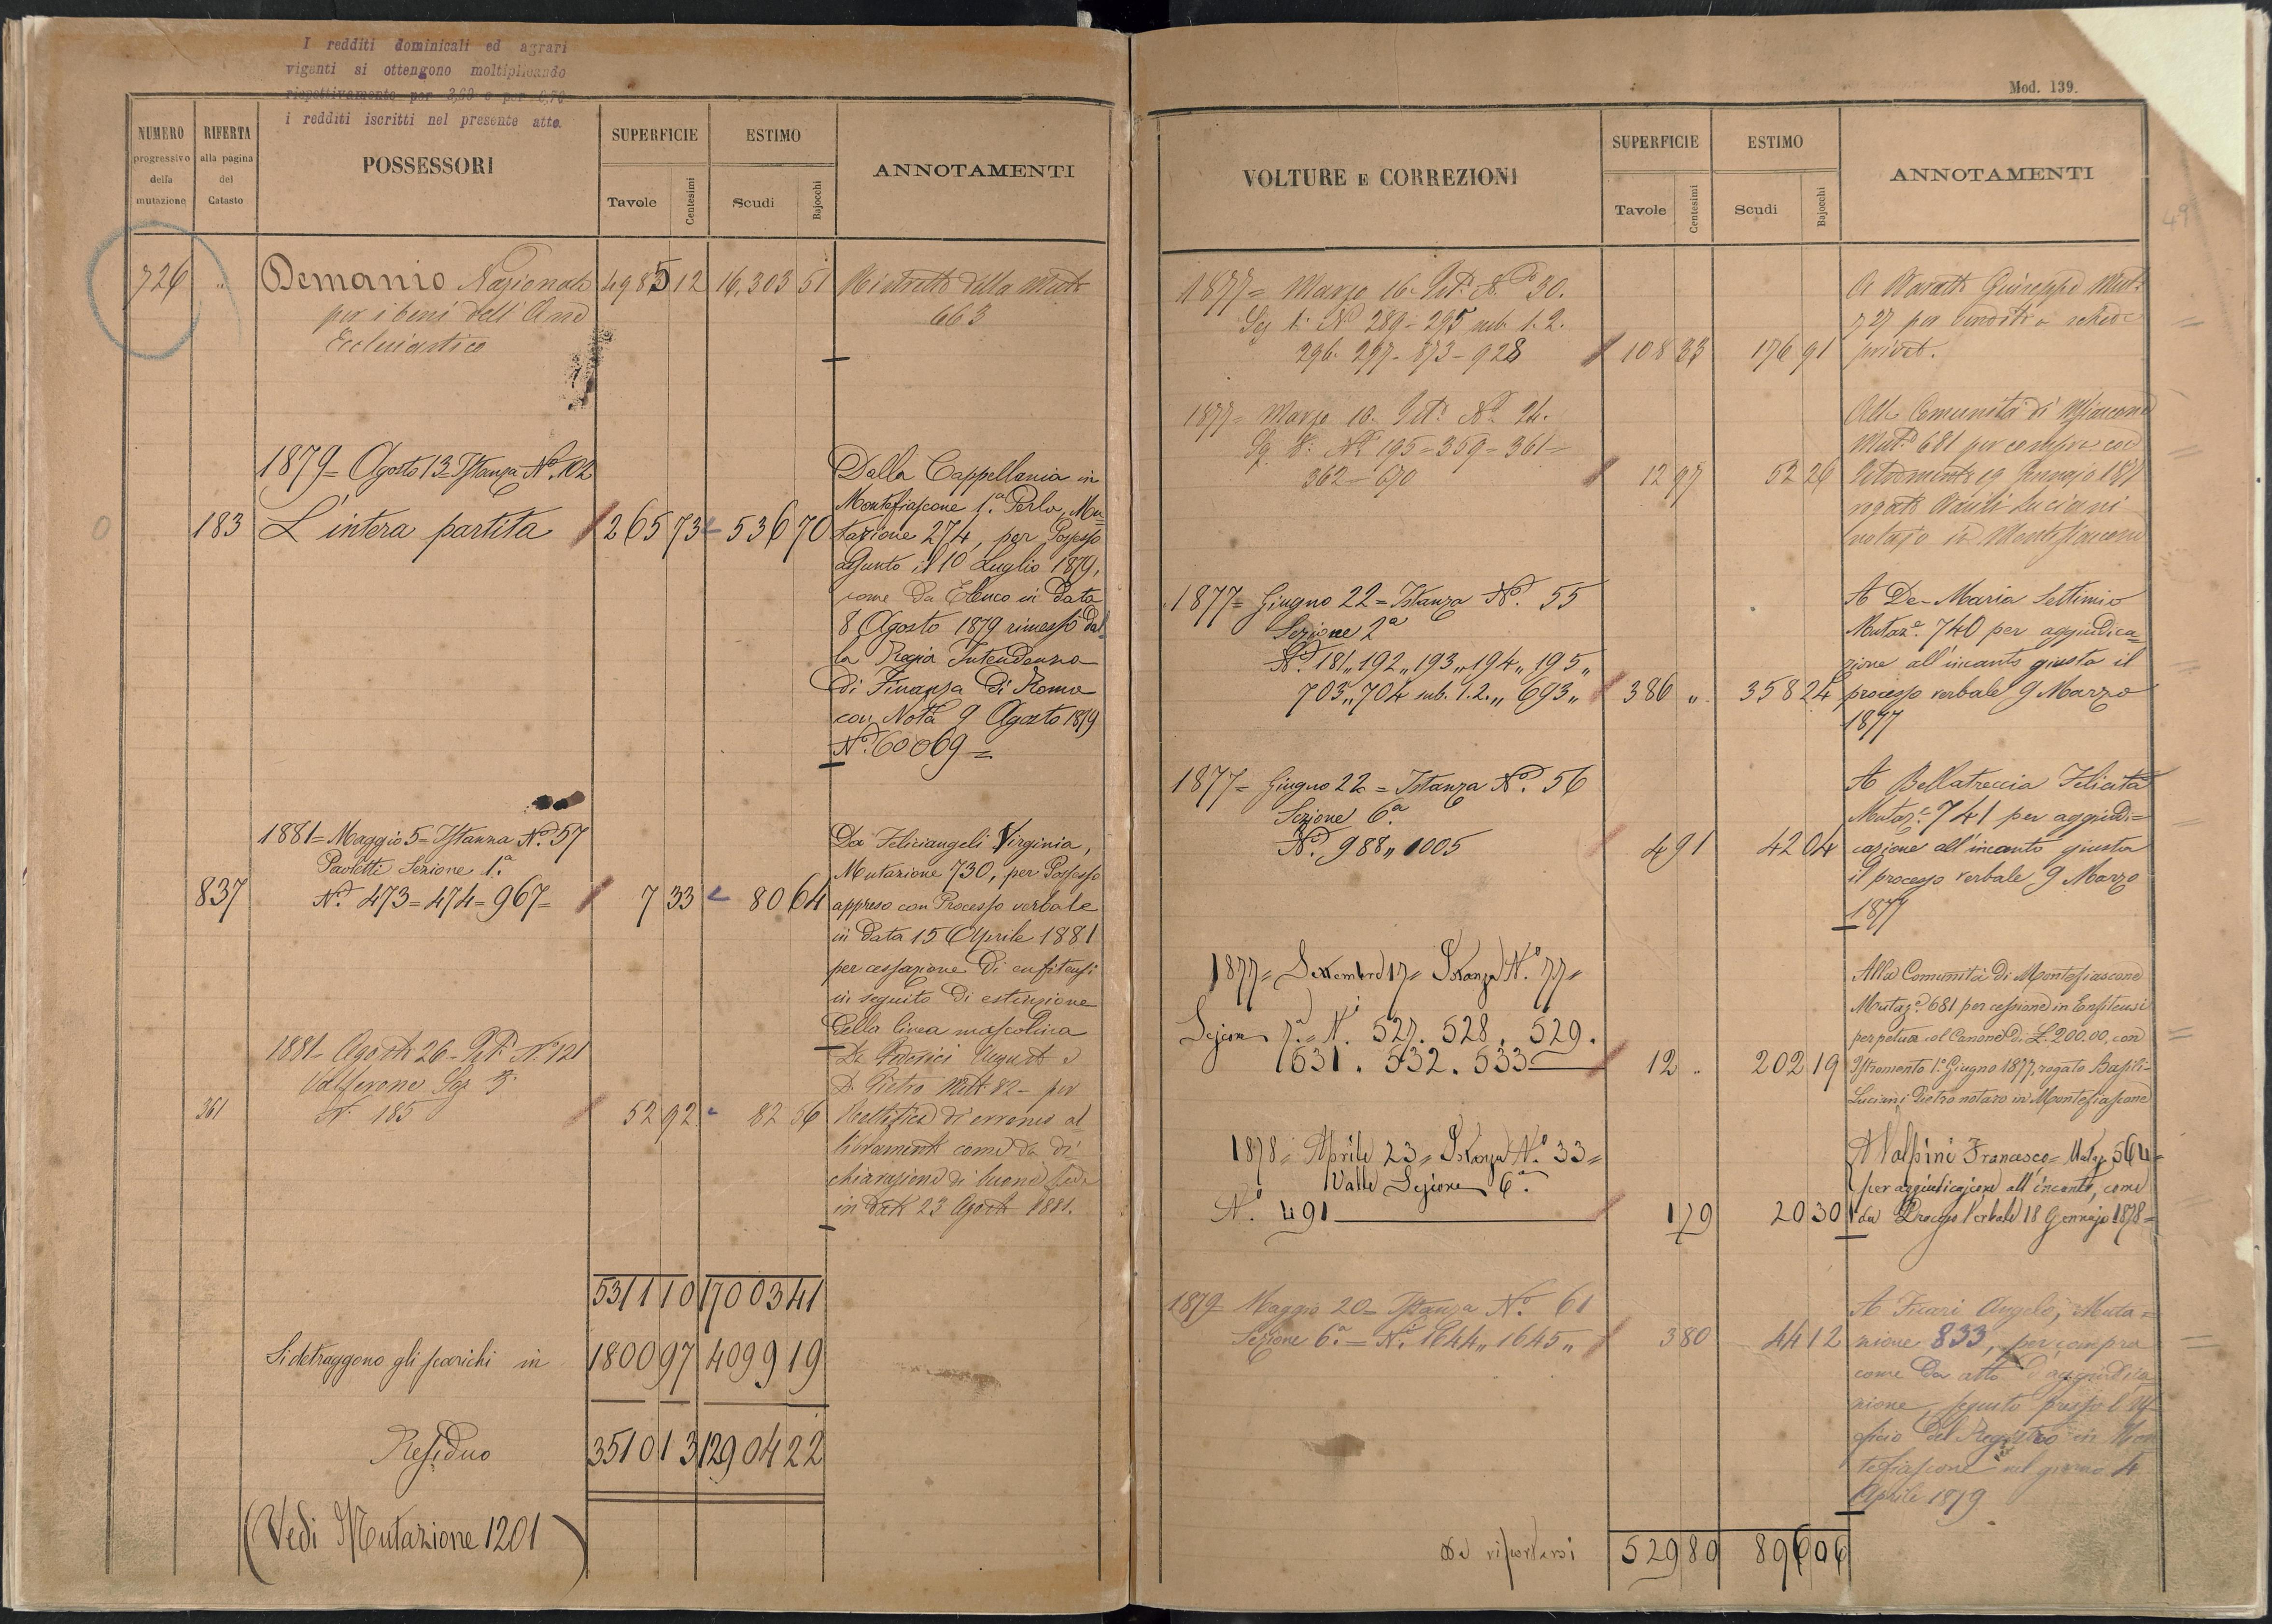 I redditi dominicali ed agrari
viganti si ottengono moltiplicando
rispettivamente per 3,60 e per 0,70
i redditi iscritti nel presente atto.
NUMERO progressivo della mutazione
RIFERTA alla pagina del Catasto
POSSESSORI
SUPERFICIE
Tavole Centesimi
ESTIMO
Scudi Bajocchi
ANNOTAMENTI
726 " Demanio Nazionale 4985 12 16,303 51
per i beni dell'
Ecclesiastico
663
1879 = Agosto 13 = Istanza N.º 102
183 L'intera partita 265 73 536 70
Dalla Cappellania in
Montefiascone 1.ª Perla, Mu=
tazione 274, per Possesso
assunto il 10 Luglio 1879,
come da Elenco in data
8 Agosto 1879 rimesso dal=
la Regia Intendenza
di Finanza di Roma
con Nota 9 Agosto 1879
N.º 60069 =
1881 = Maggio 5 = Istanza N.º 57
Paoletti Sezione 1.ª
837 N.i 473 = 474 = 967 = 7 33 80 64
Da Feliciangeli Virginia,
Mutazione 730, per Possesso
appreso con Processo verbale
in data 15 Aprile 1881
per cessazione di enfiteusi
in seguito di estinzione
della linea mascolina
1881 - Agosto 26 - N. 121
Sez 3.
361 N. 185 52 92 82 56
Pietro Mut. 82 - per
Rettifica di erroneo al
libramento come da di
chiarazione di buona fede
in data 23 Agosto 1881.
5311 10 17003 41
Si detraggono gli scarichi in 1800 97 4099 19
Residuo 3510 13 12904 22
(Vedi Mutazione 1201)
Mod. 139.
VOLTURE E CORREZIONI
SUPERFICIE
Tavole Centesimi
ESTIMO
Scudi Bajocchi
ANNOTAMENTI
49
1877 = Marzo 16 N.º 30.
Sez 1. N.i 289 - 295 sub. 1. 2.
296. 297 - 873 - 928 108 33 176 91
A Giuseppe Mut.
727 per vendita
privat.
1877 = Marzo 10. N.º 24.
N.i 195 = 359 = 361 =
362 = 670 12 97 52 26
Alla Comunità di
Mut.e 681 per
19 Gennajo 1877
Luciani
notajo in Montefiascone
1877 = Giugno 22 = Istanza N.º 55
Sezione 2.ª
N.i 181 „ 192 „ 193 „ 194 „ 195 „
703 „ 704 sub. 1. 2. „ 693 „ 386 „ 358 24
A De-Maria Settimio
Mutaz.e 740 per aggiudica=
zione all'incanto giusta il
processo verbale 9 Marzo
1877
1877 = Giugno 22 = Istanza N.º 56
Sezione 6.ª
N.i 988 „ 1005 4 91 42 04
A Bellatreccia Felicita
Mutaz.e 741 per aggiudi=
cazione all'incanto giusta
il processo verbale 9 Marzo
1877
1877 = Settembre 17 = Istanza N.º 77 =
Sezione 7.ª N.i 527. 528. 529.
531. 532. 533 12 . 202 19
Alla Comunità di Montefiascone
Mutaz.e 681 per cessione in Enfiteusi
perpetua col Canone di L. 200.00, con
Istromento 1.º Giugno 1877, rogato Basili-
Luciani Pietro notaro in Montefiascone
1878 = Aprile 23 = Istanza N.º 33 =
Valle Sezione 6.ª
N.º 491 1 79 20 30
A Volpini Francesco = Mutaz. 564 =
per aggiudicazione all'incanto, come
da Processo Verbale 18 Gennajo 1878 =
1879 = Maggio 20 = Istanza N.º 61
Sezione 6.ª = N.i 1644 „ 1645 „ 3 80 44 12
A Angelo, Muta=
zione 833, per compra
come da atto d'aggiudica=
zione, seguito presso l'Uf=
ficio del Registro in Mon
tefiascone nel giorno 4
Aprile 1879
Da riportarsi 529 80 896 06